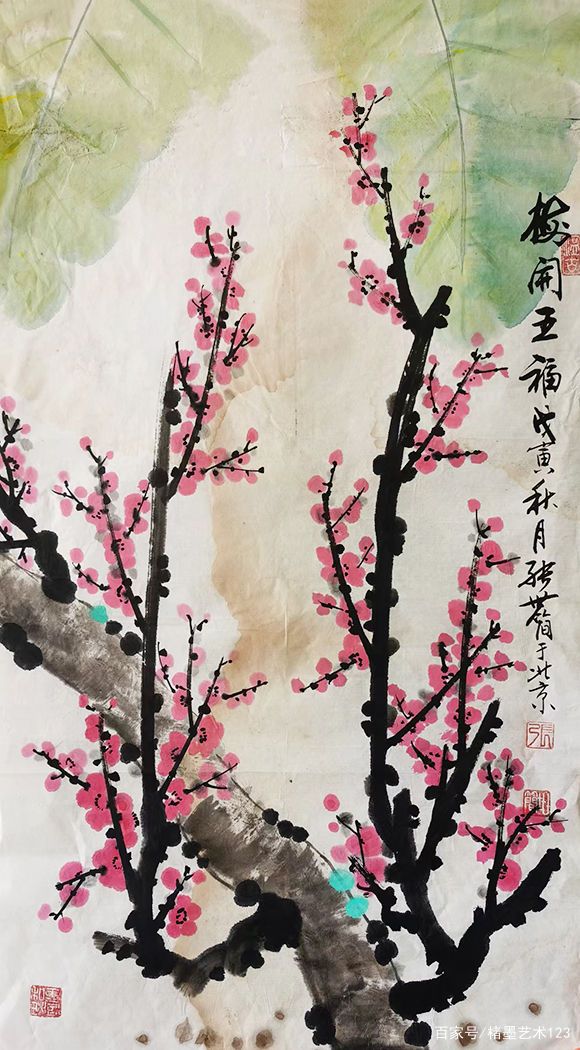 梅开五福 戊寅秋月 张世简于北京
張
百家号/楮墨艺术123